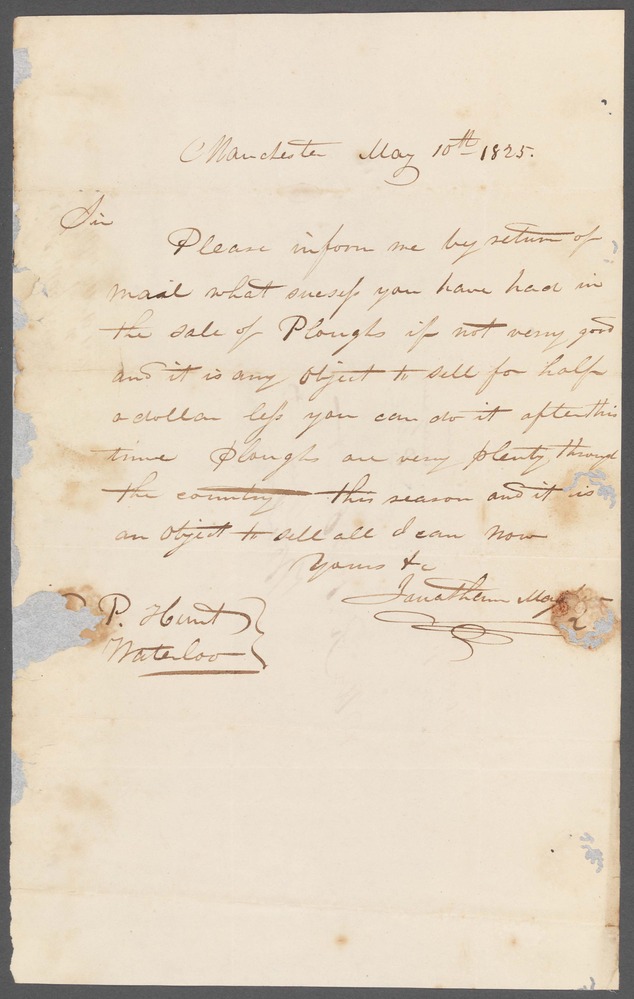 Manchester May 10th 1825.
Sir
Please inform me by return of
mail what sucess you have had in
the sale of Ploughs if not very good
and it is any object to sell for half
a dollar less you can do it after this
time Ploughs are very plenty through
the country this season and it is
an object to sell all I can now
Yours &c
Jonathan
P. Hunt
Waterloo
2